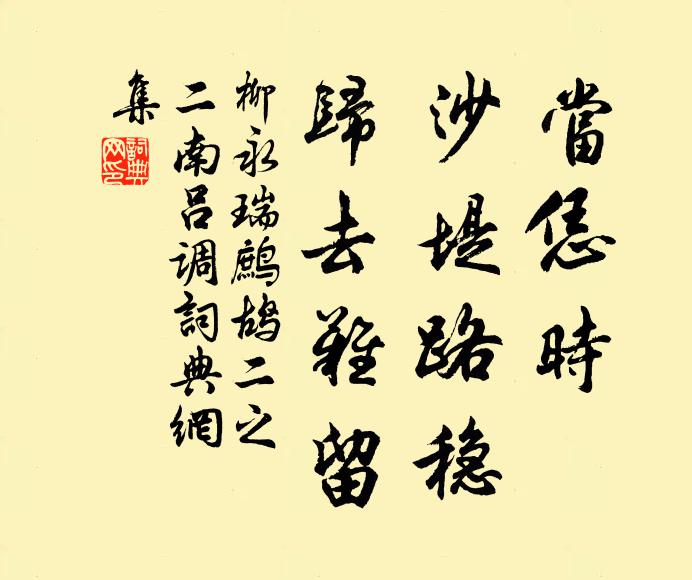 當恁時
沙堤路穩
歸去難留
柳永瑞鷓鴣二之
二南呂调詞典網
集
詞典
网印